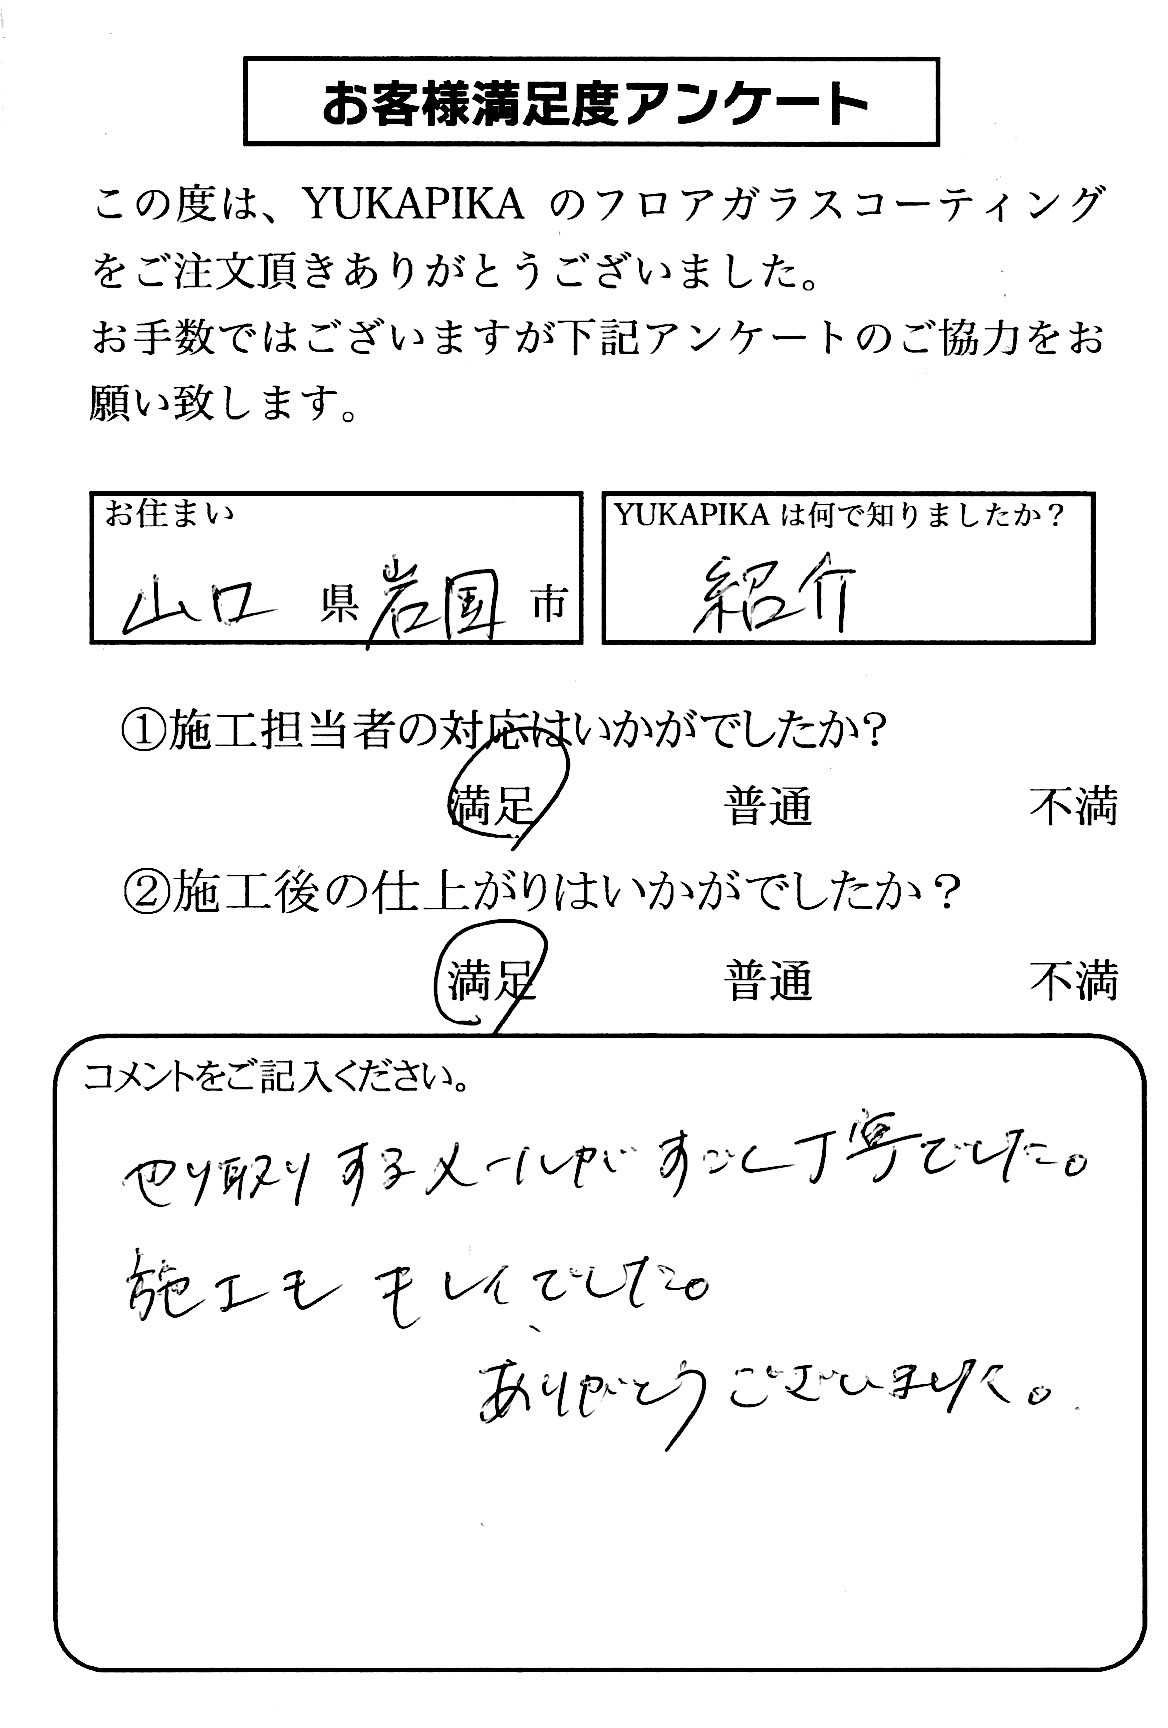 お客様満足度アンケート
この度は、YUKAPIKA のフロアガラスコーティング
をご注文頂きありがとうございました。
お手数ではございますが下記アンケートのご協力をお
願い致します。
お住まい
山口 県 岩国 市
YUKAPIKA は何で知りましたか？
紹介
①施工担当者の対応はいかがでしたか?
満足 普通 不満
②施工後の仕上がりはいかがでしたか？
満足 普通 不満
コメントをご記入ください。
やり取りするメールがすごく丁寧でした。
施工もキレイでした。
ありがとうございました。